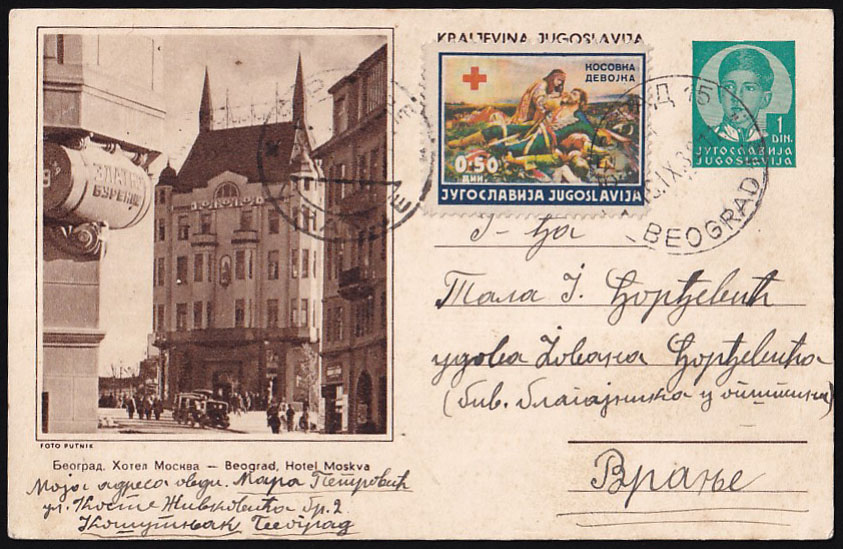 KRALJEVINA JUGOSLAVIJA
КОСОВКА
ДЕВОЈКА
0·50
ДИН.
ЈУГОСЛАВИЈА JUGOSLAVIJA
1
DIN.
ЈУГОСЛАВИЈА
JUGOSLAVIJA
BEOGRAD
БУРЕНЦЕ
Г-ђа
Тала Ј. Ђорђевић
удова Јована Ђорђевића
(бив. благајника у општини)
Врање
FOTO PUTNIK
Београд. Хотел Москва — Beograd, Hotel Moskva
Моја адреса овде. Мара Петровић
ул. Косте Живковића бр. 2.
Кошутњак Београд